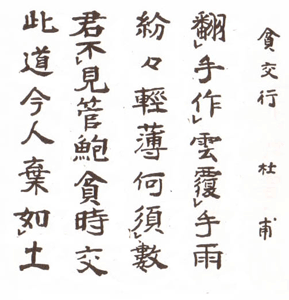 貧交行 杜甫
翻レ手作レ雲覆レ手雨
紛々輕薄何須レ數
君不レ見管鮑貧時交
此道今人棄如レ土